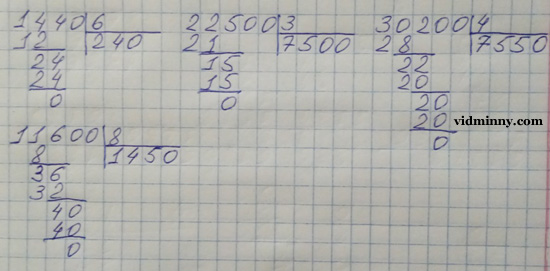 1440 6
12 240
24
24
0
22500 3
21 7500
15
15
0
30200 4
28 7550
22
20
20
20
0
vidminny.com
11600 8
8 1450
36
32
40
40
0